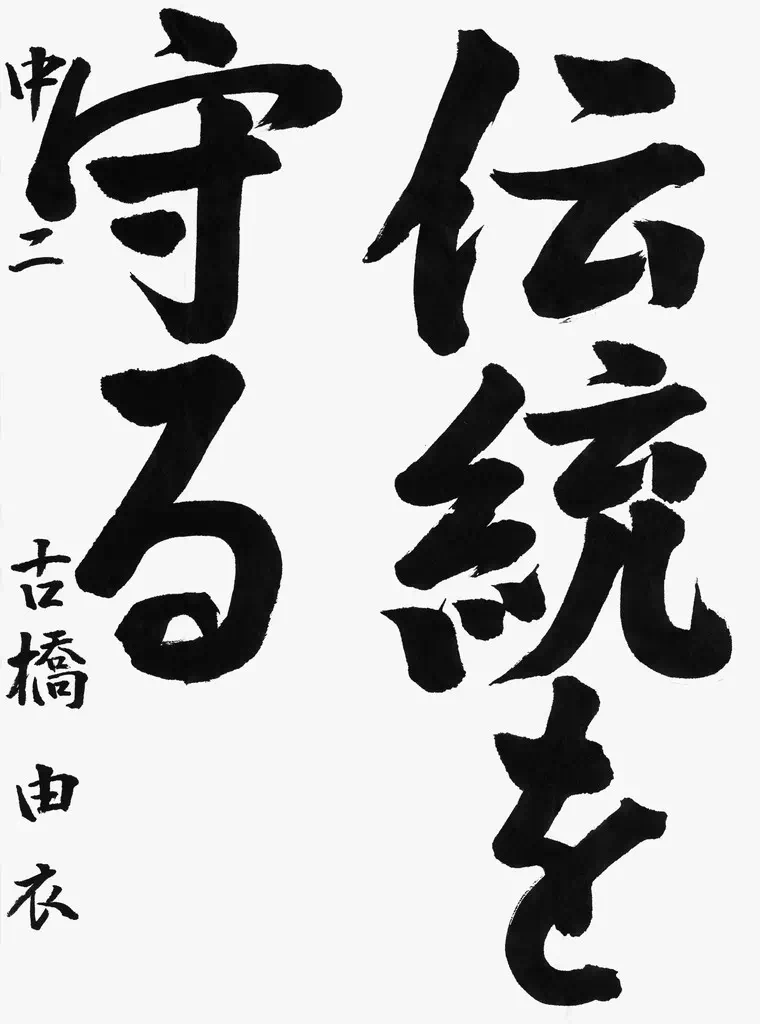 伝統を
守る
中二 古橋由衣